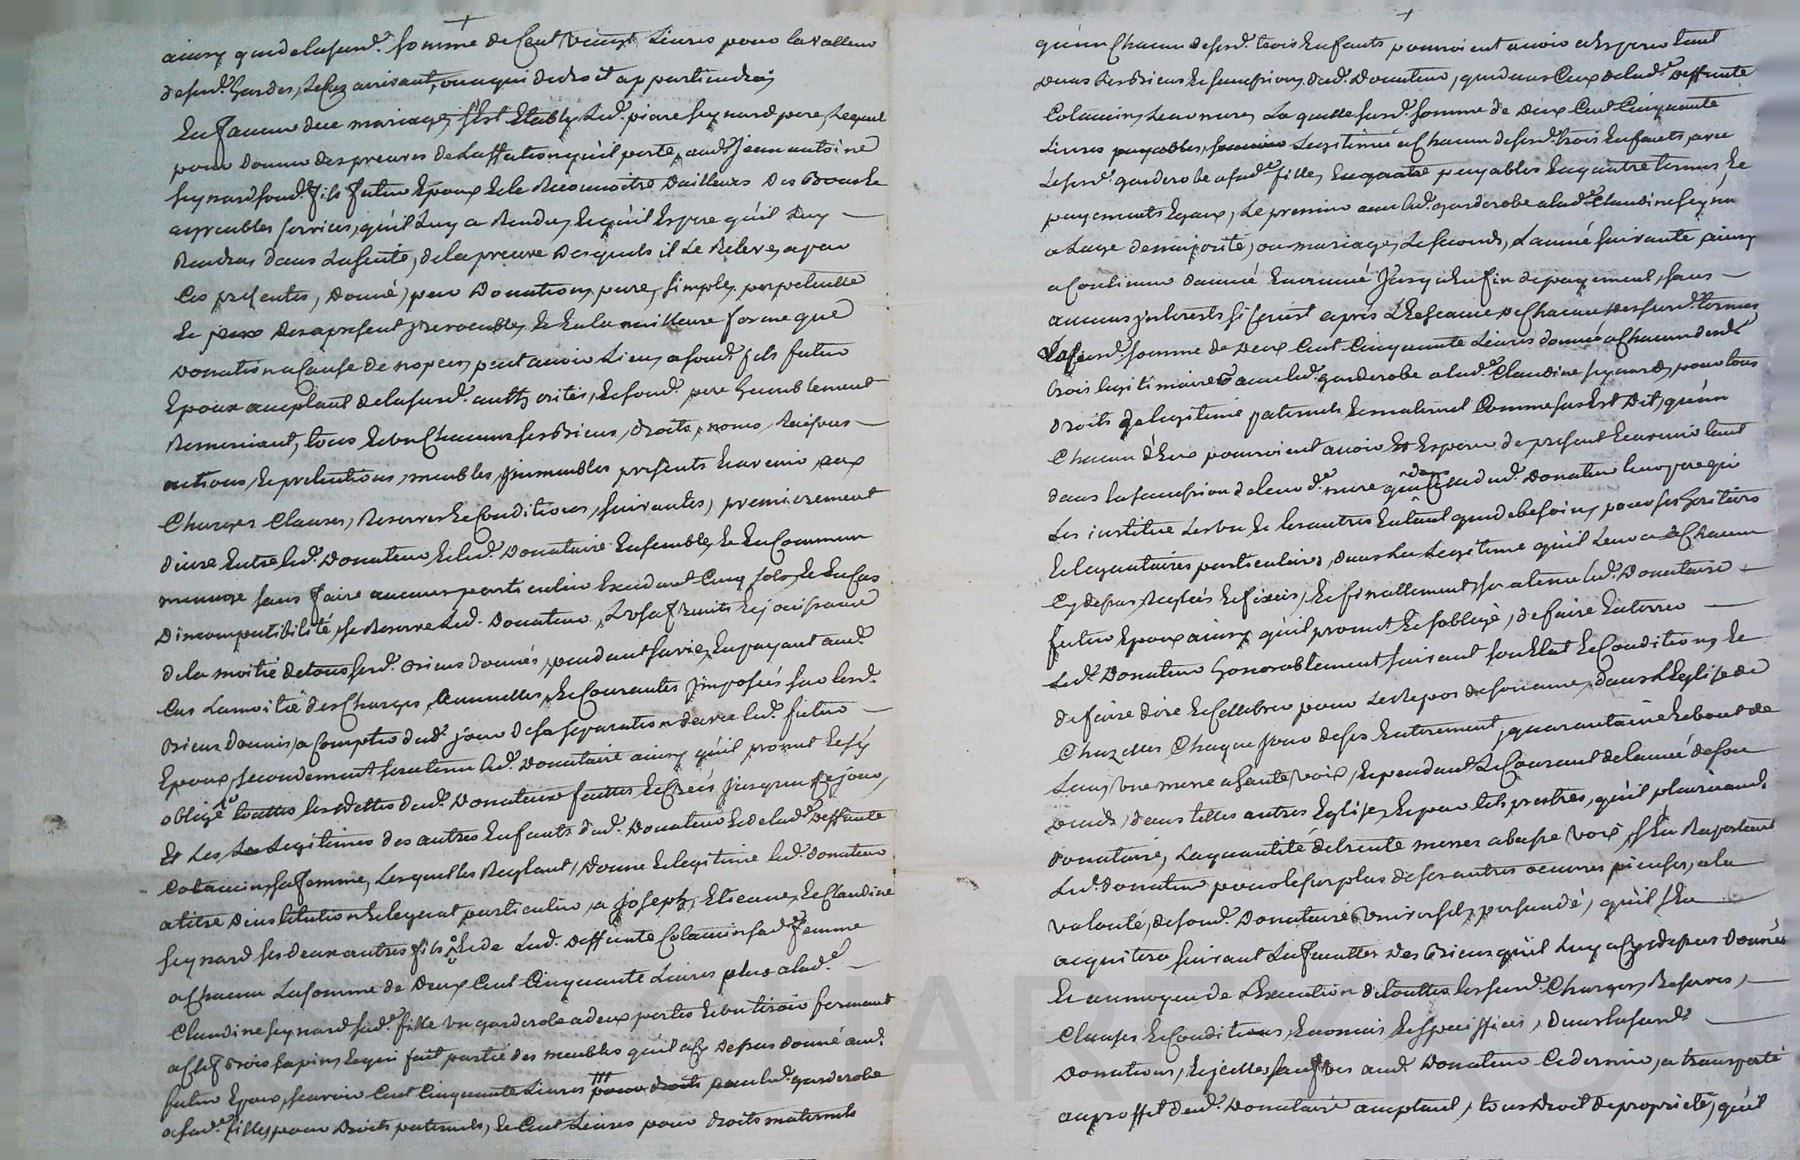 ainsy que de lasusd.e somme de Cent vingt Livres pour la valleur
desusd. hardes, le Cas arrivant, ou a qui de droit appartiendra
En faveur du mariage, s'Est Etably Led. piarre seynard pere, Lequel
pour donner des preuves de Laffation qu'il porte, aud. jean antoine
seynard sond. fils futur Epoux Et le Reconnoitre Dailleurs Des Bons &
agreables services, qu'il Luy a Rendu, Et qu'il Espere qu'il Luy
Rendra dans La suite, de la preuve Desquels il Le Releve, a par
Ces presentes, Donné, par Donation pure, simple, perpetuelle
Et Des apresent jrrevocable, Et En la meilleure forme que
Donation a Cause de nopces peut avoir Lieu, a sond. fils futur
Epoux acceptant de lasusd. authorité, Et sond. pere humblement
Remerciant, tous Et un Chacuns ses Biens, droits, noms, Raisons
actions, Et pretentions, meubles, jmmeubles presents Et avenir, aux
Charges Clauses, Reserves Et Conditions, suivantes, premierement
Divre Entre led. Donateur Et led. Donataire Ensemble, Et En Commun
menage sans faire aucuns particulier Excedant Cinq sols, Et En Cas
Dincompatibilité, se Reserve Led. Donateur, Lusufruits Et jouissance
de la moitié de tous sesd. Biens donnés, pendant sa vie, En payant aud.
Cas La moitié des Charges, annuelles, Et Courantes jmposées sur lesd.
Biens donnés, a Compter dud. jour de sa separation davec led. futur
Epoux, secondement sera tenu led. Donataire ainsy qu'il promet Et s'y
obligé toutes les dettes dud. Donateur faittes Et Crées jusqu'a Ce jour,
Et Les Legitimes des autres Enfants dud. Donateur Et de lad. Deffunte
Colaucin sa femme, Lesquelles Reglant, Donne Et legitime led. donateur
a titre Dinstitution Et legat particulier, a joseph, Etienne, Et Claudine
seynard ses deux autres fils Et de Lad. Deffunte Colaucin sad. femme
a Chacun La somme de Deux Cent Cinquante Livres plus a lad.
Claudine seynard sad. fille un garderobe a deux portes Et un tiroir fermant
a Clef Bois sapin, Et qui fait partie des meubles qu'il a Cy Depus donné aud.
futur Epoux, scavoir Cent Cinquante Livres pour droits, avec led. garderobe
a sad. fille, pour Droits paternels, Et Cent Livres pour droits maternels
qu'un Chacun desusd. trois Enfants pourroient avoir et Esperer tant
Dans les Biens Et succession, dud. Donateur, que dans Ceux de lad. Deffunte
Colaucin, Leur mere, La quelle susd. somme de Deux Cent Cinquante
Livres Legitimée a Chacun desusd. trois Enfants, avec
Le susd. garderobe a sad. fille, payables En quatre termes, Et
payements Egaux, Le premier avec led. garderobe a lad. Claudine seynard
a Lage de majorité, ou mariage, Le second, L'année suivante, ainsy
a Continuer dannée En année jusqu'En fin de payement, sans
aucuns jnterests si Ce n'est apres L'Echeance de Chacun desusd. termes
Lasusd. somme de Deux Cent Cinquante Livres donnée a Chacun desd.
trois legitimaires avec led. garderobe a lad. Claudine seynard, pour tous
Droits de legitime paternels Et maternel Comme sus Est Dit, qu'un
Chacun d'Eux pourroient avoir Et Esperer de present Et avenir tant
dans la succession de leur d. mere que dans Celle dud. Donateur leur pere qui
Les institue Les uns Et les autres En tant que de besoin, pour ses heritiers
Et legataires particuliers, dans La Legitime qu'il Leur a Chacun
Cy depus, Reglés Et fixés, Et finallement sera tenu led. Donataire
futur Epoux ainsy qu'il promet Et s'oblige, de faire Enterrer
Led. Donateur honorablement suivant son Etat Et Condition, Et
De faire dire Et Cellebrer pour Le Repos de son ame, dans L'Eglise de
Chazelles Chaque jour de ses Enterrement, quarantaine Et bout de
Lan, une messe a haute voix, Et pendant Le Courant de L'année de son
deuil, dans telles autres Eglises, Et par tels prestres, qu'il plaira aud.
donataire, La quantité de trente messes a basse voix, s'En Raportant
Led. donateur pour le surplus de ses autres oeuvres pieuses, a la
volonté, desond. Donataire universel, persuadé, qu'il s'En
acquitera suivant La faculter Des Biens qu'il Luy a Cy depus donnés
Et au moyen de L'Execution de touttes lesusd. Charges, Reserves,
Clauses Et Conditions, Enoncés Et speciffiées, Dans lasusd.
Donation, Et jcelles sauves aud. Donateur Ce dernier, a transporté
au proffit dud. Donataire acceptant, tous Droit de propriété, qu'il